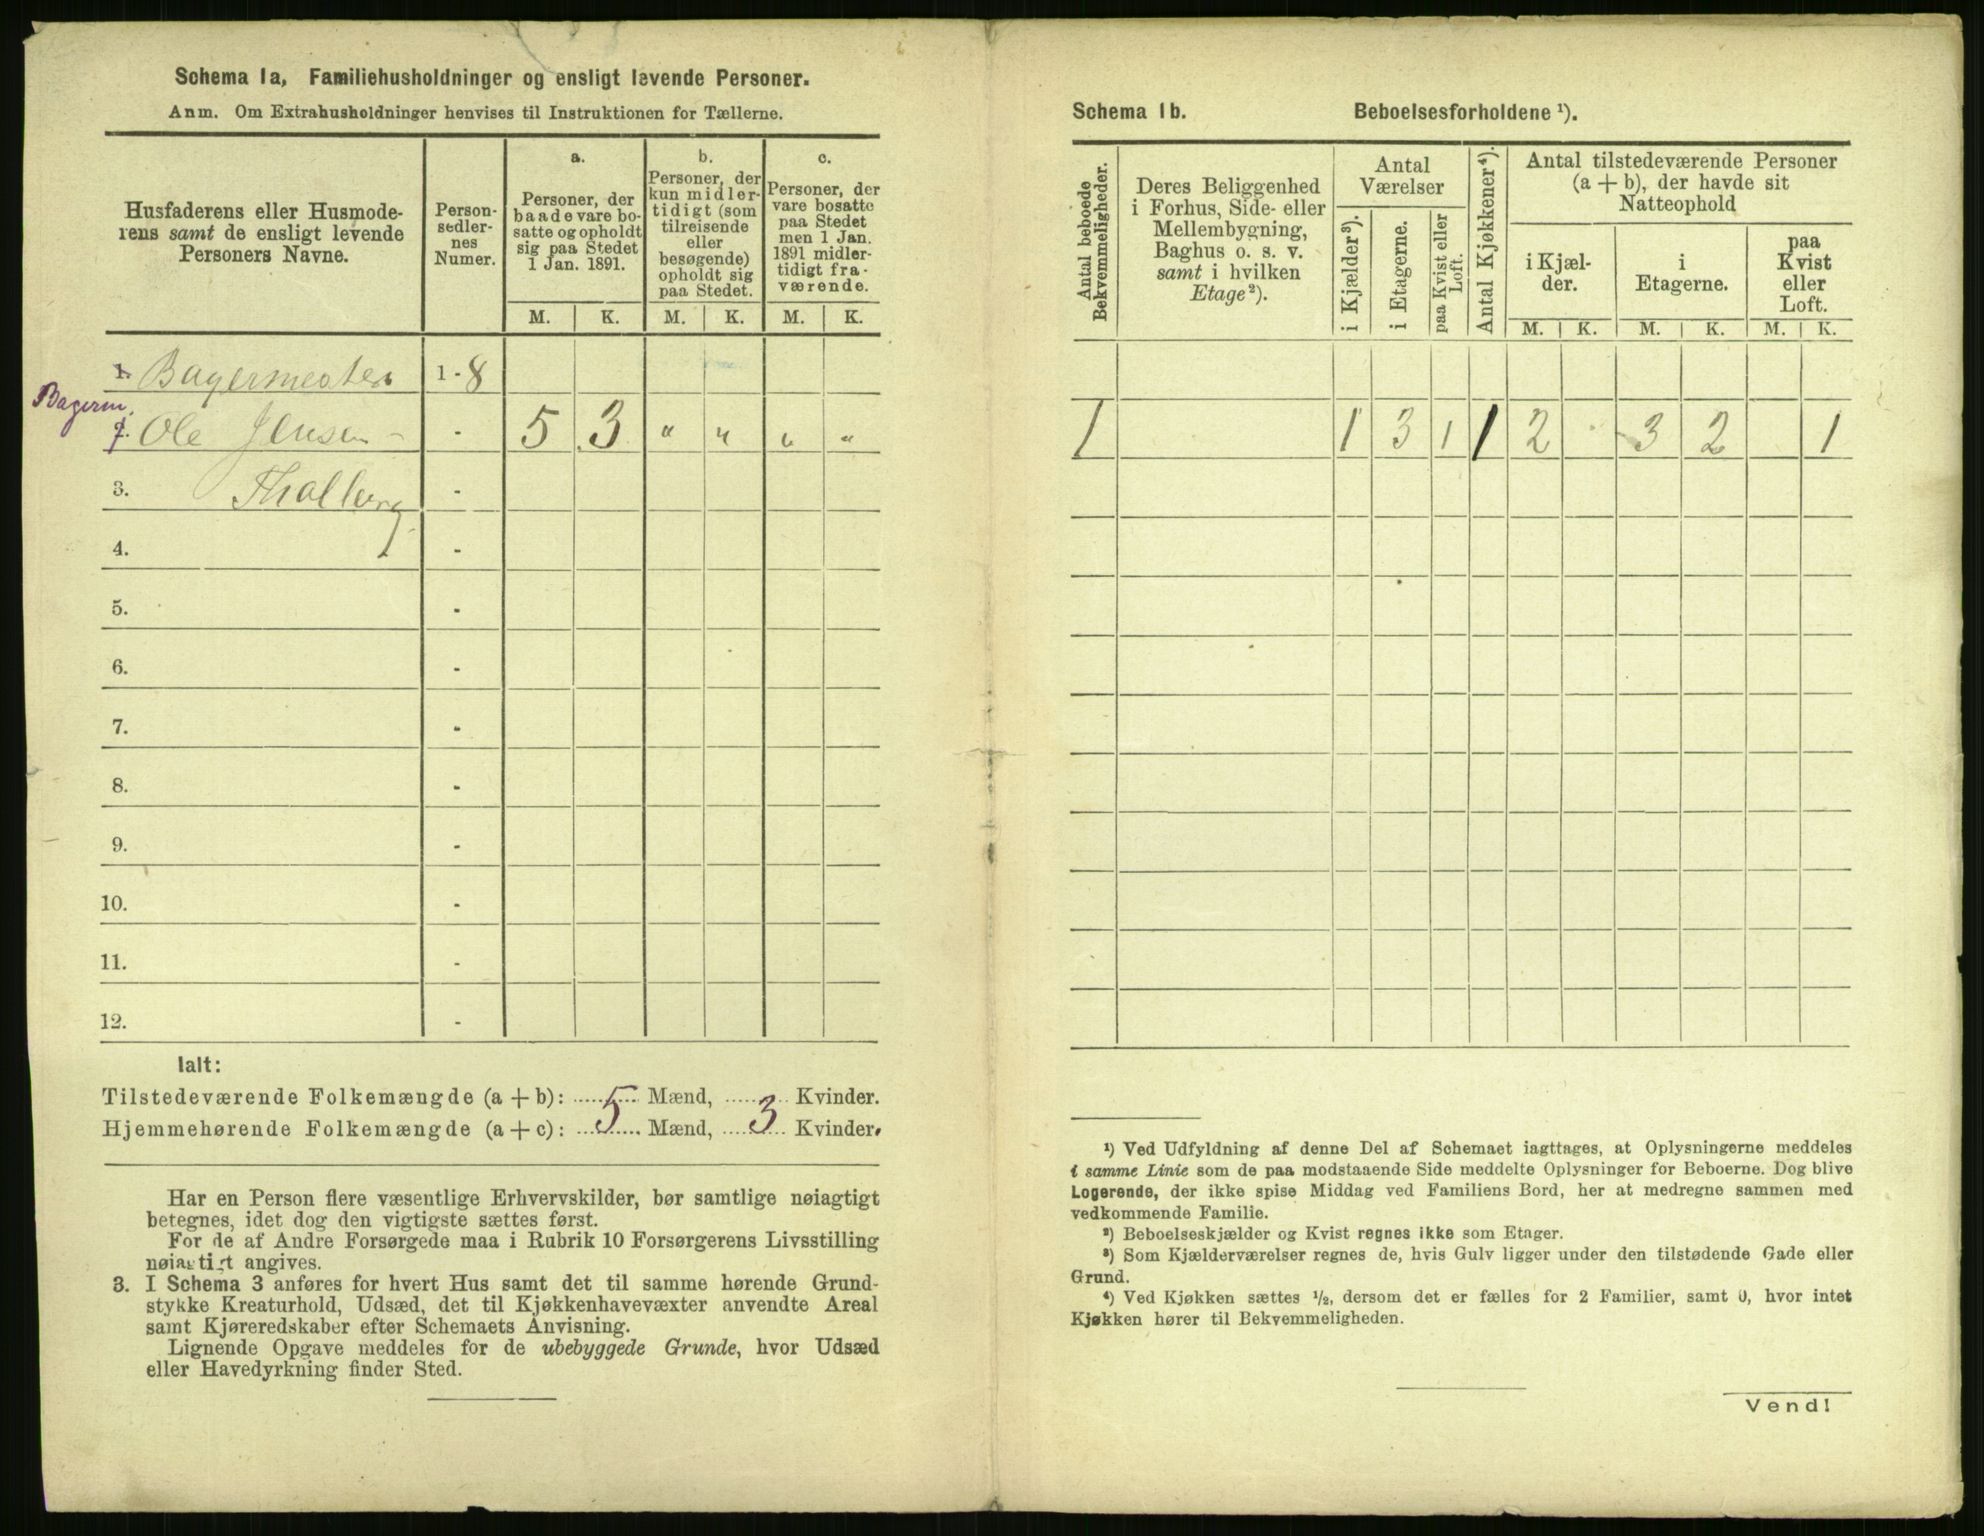 Schema 1a, Familiehusholdninger og ensligt levende Personer.
Anm. Om Extrahusholdninger henvises til Instruktionen for Tællerne.
Husfaderens eller Husmode-
rens samt de ensligt levende
Personers Navne.
Person-
sedler-
nes
Numer.
a.
Personer, der
baade vare bo-
satte og opholdt
sig paa Stedet
1 Jan. 1891.
b.
Personer, der
kun midler-
tidigt (som
tilreisende
eller
besøgende)
opholdt sig
paa Stedet.
c.
Personer, der
vare bosatte
paa Stedet
men 1 Jan.
1891 midler-
tidigt fra-
værende.
M. K. M. K. M. K.
1. Bagermester 1 - 8
Bagerm.
2. Ole Jensen - - 5 3 " " " "
3. Thalberg -
4. -
5. -
6. -
7. -
8. -
9. -
10. -
11. -
12. -
Ialt:
Tilstedeværende Folkemængde (a + b): 5 Mænd, 3 Kvinder.
Hjemmehørende Folkemængde (a + c): 5 Mænd, 3 Kvinder.
Har en Person flere væsentlige Erhvervskilder, bør samtlige nøiagtigt
betegnes, idet dog den vigtigste sættes først.
For de af Andre Forsørgede maa i Rubrik 10 Forsørgerens Livsstilling
nøiagtigt angives.
3. I Schema 3 anføres for hvert Hus samt det til samme hørende Grund-
stykke Kreaturhold, Udsæd, det til Kjøkkenhavevæxter anvendte Areal
samt Kjøreredskaber efter Schemaets Anvisning.
Lignende Opgave meddeles for de ubebyggede Grunde, hvor Udsæd
eller Havedyrkning finder Sted.
Schema 1b. Beboelsesforholdene ¹).
Antal beboede
Bekvemmeligheder.
Deres Beliggenhed
i Forhus, Side- eller
Mellembygning,
Baghus o. s. v.
samt i hvilken
Etage²).
Antal
Værelser
i Kjælder³).
i Etagerne.
paa Kvist eller
Loft.
Antal Kjøkkener⁴).
Antal tilstedeværende Personer
(a + b), der havde sit
Natteophold
i Kjæl-
der.
i
Etagerne.
paa
Kvist
eller
Loft.
M. K. M. K. M. K.
1 1 3 1 1 2 3 2 1
¹) Ved Udfyldning af denne Del af Schemaet iagttages, at Oplysningerne meddeles
i samme Linie som de paa modstaaende Side meddelte Oplysninger for Beboerne. Dog blive
Logerende, der ikke spise Middag ved Familiens Bord, her at medregne sammen med
vedkommende Familie.
²) Beboelseskjælder og Kvist regnes ikke som Etager.
³) Som Kjælderværelser regnes de, hvis Gulv ligger under den tilstødende Gade eller
Grund.
⁴) Ved Kjøkken sættes ½, dersom det er fælles for 2 Familier, samt 0, hvor intet
Kjøkken hører til Bekvemmeligheden.
Vend!